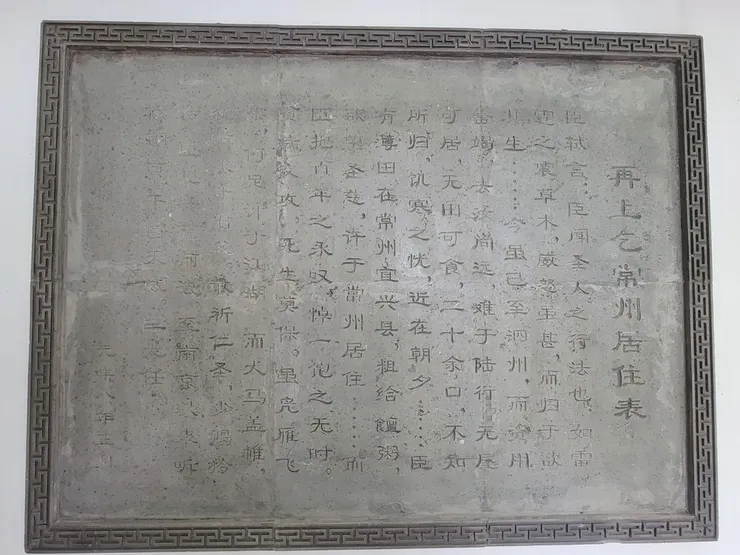 再上乞常州居住表
臣轼言：臣闻圣人之行法也，如雷
之震草木，威怒虽甚，而归于欲
其生……今虽已至泗州，而资用
罄竭，去汝尚远，难于陆行，无屋
可居，无田可食，二十余口，不知
所归，饥寒之忧，近在朝夕……臣
有薄田在常州宜兴县，粗给饘粥，
欲望圣慈，许于常州居住……而
臣抱百年之永叹，悼一饱之无时。
贫病交攻，死生莫保。虽凫雁飞
集，何足计于江湖，而犬马盖帷，
敢祈仁圣，少赐矜
至南京以来听